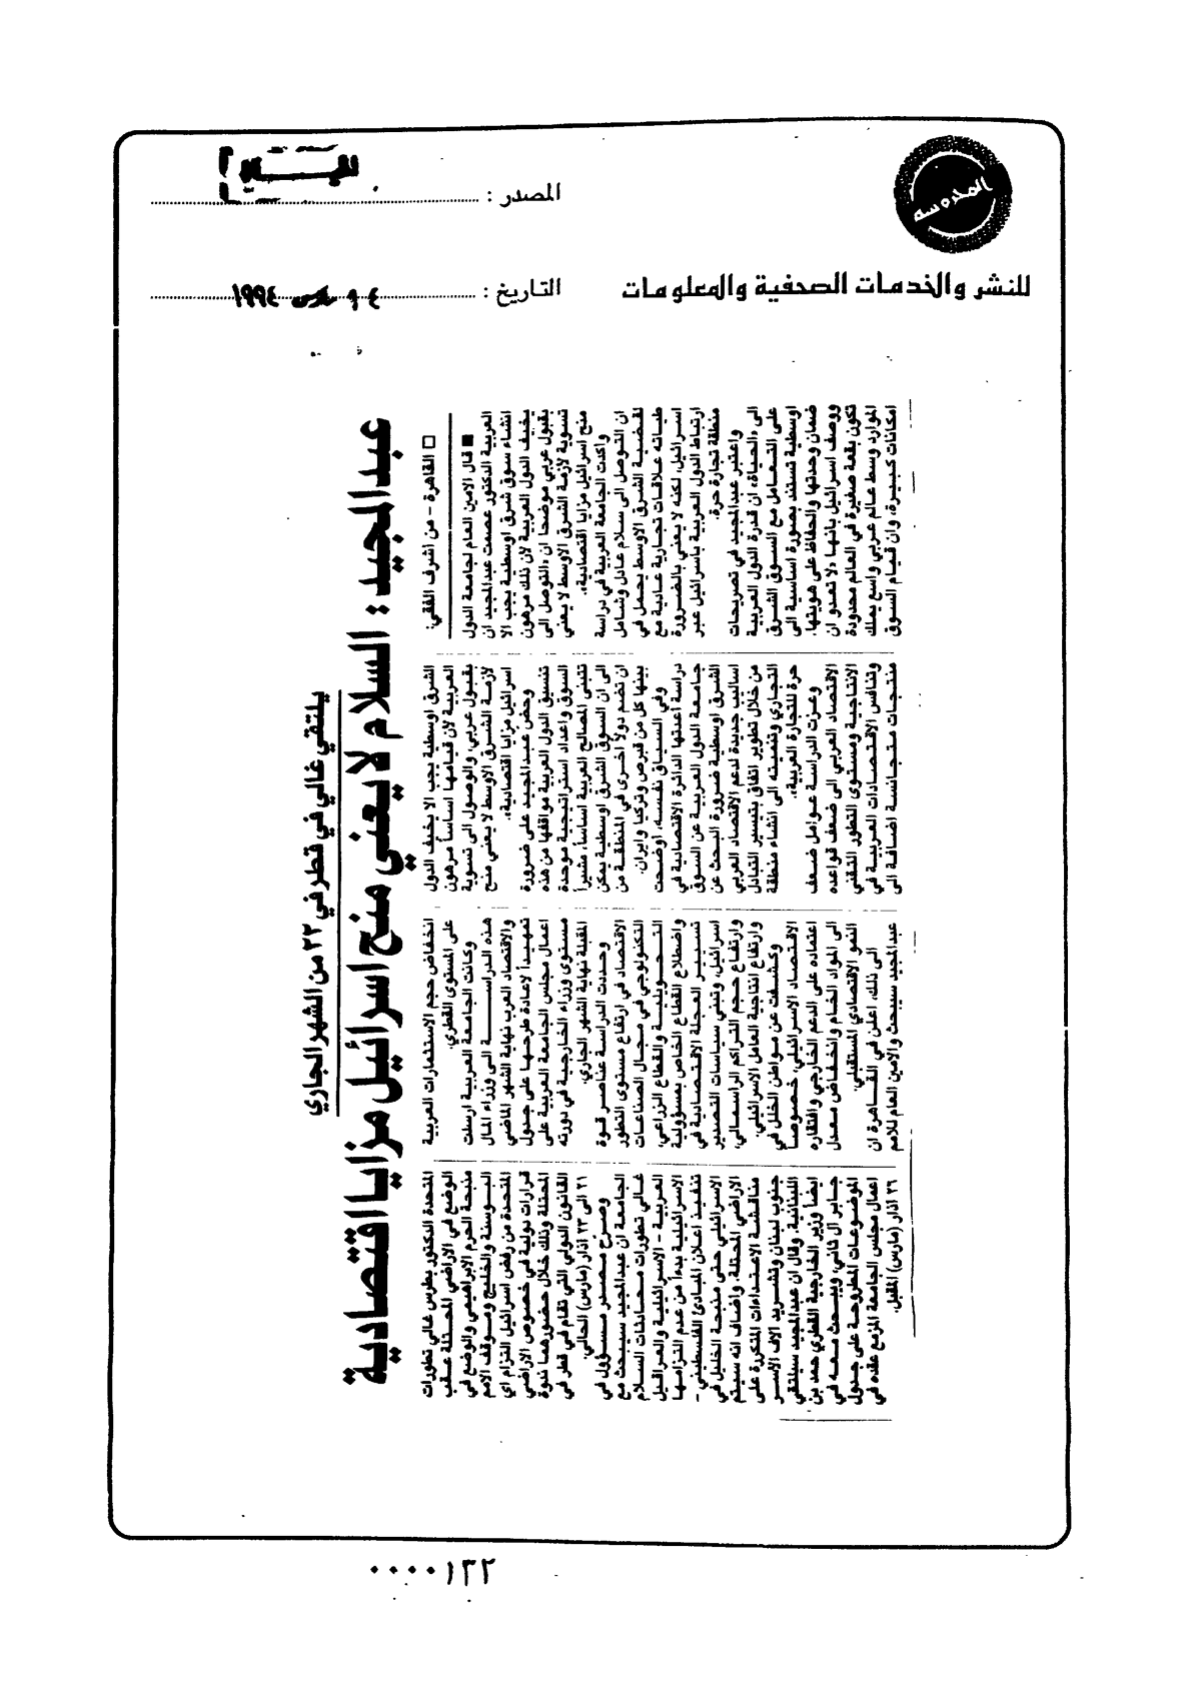 المحروسة
المصدر :
للنشر والخدمات الصحفية والمعلومات
التاريخ : مارس ١٩٩٤
يلتقي غالي في قطر في ٢٢ من الشهر الجاري
عبدالمجيد : السلام لا يعني منح اسرائيل مزايا اقتصادية
□ القاهرة - من اشرف الفقي:
■ قال الامين العام لجامعة الدول
العربية الدكتور عصمت عبدالمجيد ان
انشاء سوق شرق اوسطية يجب الا
يخيف الدول العربية لأن ذلك مرهون
بقبول عربي موضحا ان «التوصل الى
تسوية لأزمة الشرق الاوسط لا يعني
منح اسرائيل مزايا اقتصادية».
وأكدت الجامعة العربية في دراسة
ان التوصل الى سلام عادل وشامل
لقضية الشرق الاوسط يحمل في
طياته علاقات تجارية عادية مع
اسرائيل، لكنه لا يعني بالضرورة
ارتباط الدول العربية باسرائيل عبر
منطقة تجارة حرة.
واعتبر عبدالمجيد في تصريحات
الى «الحياة» ان قدرة الدول العربية
على التعامل مع السوق الشرق
اوسطية تستند بصورة اساسية الى
ضمان وحدتها والحفاظ على هويتها.
ووصف اسرائيل بانها «لا تعدو ان
تكون بقعة صغيرة في العالم محدودة
الموارد وسط عالم عربي واسع يملك
امكانات كبيرة، وان قيام السوق
الشرق اوسطية يجب الا يخيف الدول
العربية لأن قيامها اساساً مرهون
بقبول عربي، والوصول الى تسوية
لأزمة الشرق الاوسط لا يعني منح
اسرائيل مزايا اقتصادية».
وحض عبدالمجيد على ضرورة
تنسيق الدول العربية مواقفها من هذه
السوق واعداد استراتيجية موحدة
تتبنى المصالح العربية اساساً، مشيراً
الى ان السوق الشرق اوسطية يمكن
ان تضم دولاً اخرى في المنطقة من
بينها كل من قبرص وتركيا وايران.
وفي السياق نفسه، اوضحت
دراسة أعدتها الدائرة الاقتصادية في
جامعة الدول العربية عن السوق
الشرق اوسطية ضرورة البحث عن
اساليب جديدة لدعم الاقتصاد العربي
من خلال تطوير اتفاق بتيسير التبادل
التجاري وتنميته الى انشاء منطقة
حرة للتجارة العربية.
وعزت الدراسة عوامل ضعف
الاقتصاد العربي الى ضعف قواعده
الانتاجية ومستوى التطور التقني
وتنافس الاقتصادات العربية في
منتجات متجانسة اضافة الى
انخفاض حجم الاستثمارات العربية
على المستوى القطري.
وكانت الجامعة العربية ارسلت
هذه الدراسة الى وزراء المال
والاقتصاد العرب نهاية الشهر الماضي
تمهيداً لاعادة طرحها على جدول
اعمال مجلس الجامعة العربية على
مستوى وزراء الخارجية في دورته
المقبلة نهاية الشهر الجاري.
وحددت الدراسة عناصر قوة
الاقتصاد في ارتفاع مستوى التطور
التكنولوجي في مجال الصناعات
التحويلية والقطاع الزراعي،
واضطلاع القطاع الخاص بمسؤولية
تسيير العجلة الاقتصادية في
اسرائيل، وتبني سياسات التصدير
وارتفاع حجم التراكم الرأسمالي،
وارتفاع انتاجية العامل الاسرائيلي.
وكشفت عن مواطن الخلل في
الاقتصاد الاسرائيلي، خصوصاً
اعتماده على الدعم الخارجي وافتقاره
الى المواد الخام وانخفاض معدل
النمو الاقتصادي المستقبلي.
الى ذلك، اعلن في القاهرة ان
عبدالمجيد سيبحث والامين العام للامم
المتحدة الدكتور بطرس غالي تطورات
الوضع في الاراضي المحتلة عقب
مذبحة الحرم الابراهيمي والوضع في
البوسنة والخليج وموقف الامم
المتحدة من رفض اسرائيل التزام اي
قرارات دولية في خصوص الاراضي
المحتلة وذلك خلال حضورهما ندوة
القانون الدولي التي تقام في قطر في
٢١ الى ٢٣ آذار (مارس) الحالي.
وصرح مصدر مسؤول في
الجامعة ان عبدالمجيد سيبحث مع
غالي تطورات محادثات السلام
العربية - الاسرائيلية والعراقيل
الاسرائيلية بدءاً من عدم التزامها
تنفيذ اعلان المبادئ الفلسطيني -
الاسرائيلي حتى مذبحة الخليل في
الاراضي المحتلة. واضاف انه سيتم
مناقشة الاعتداءات المتكررة على
جنوب لبنان وتشريد آلاف الاسر
اللبنانية. وقال ان عبدالمجيد سيلتقي
ايضاً وزير الخارجية القطري حمد بن
جابر آل ثاني، ويبحث معه في
الموضوعات المطروحة على جدول
اعمال مجلس الجامعة المزمع عقده في
٢٦ آذار (مارس) المقبل.
٠٠٠٠١٣٢